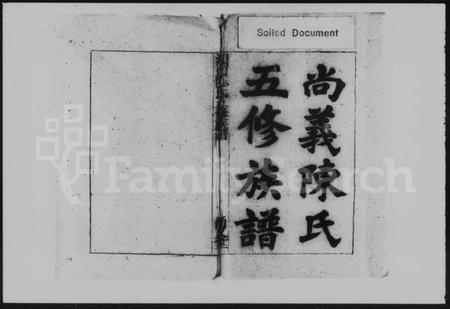 Soiled Document
尚義陳氏
五修族譜
FamilySearch